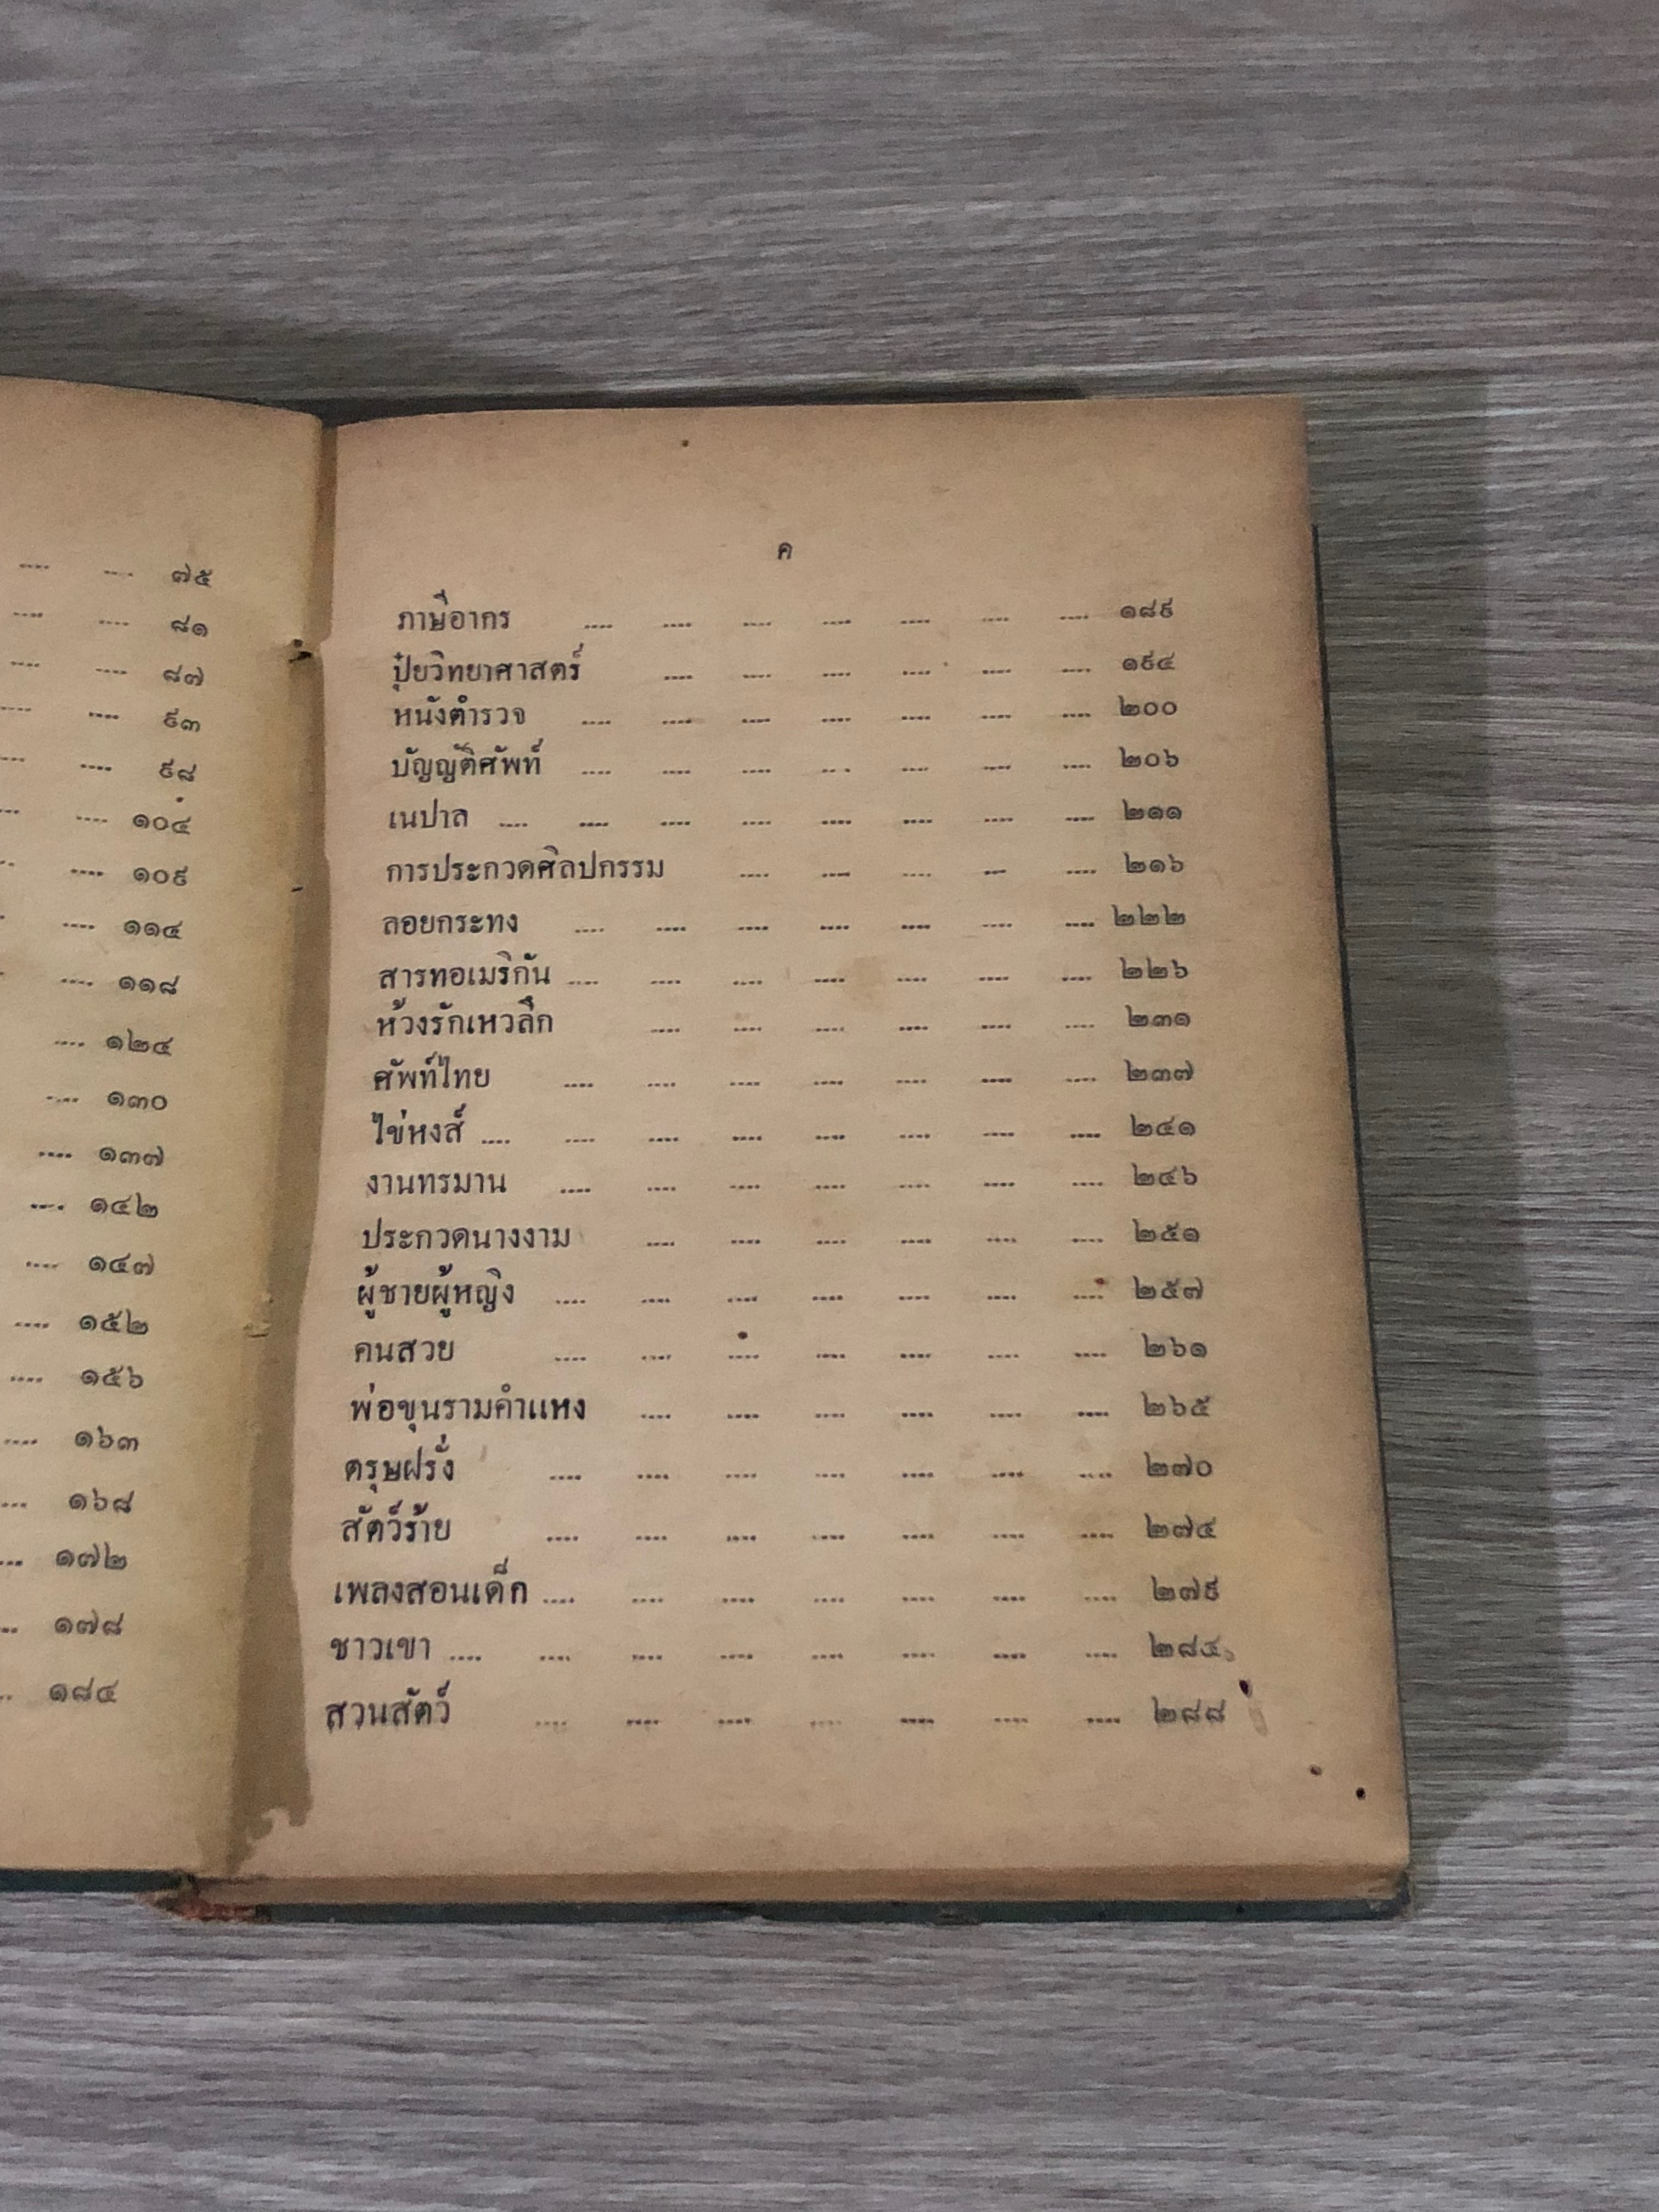 ๗๕
๘๑
๘๗
๙๓
๙๘
๑๐๔
๑๐๙
๑๑๔
๑๑๘
๑๒๔
๑๓๐
๑๓๗
๑๔๒
๑๔๗
๑๕๒
๑๕๖
๑๖๓
๑๖๘
๑๗๒
๑๗๘
๑๘๔
ค
ภาษีอากร .... .... .... .... .... .... .... ๑๘๙
ปุ๋ยวิทยาศาสตร์ .... .... .... .... .... .... ๑๙๔
หนังตำรวจ .... .... .... .... .... .... .... ๒๐๐
บัญญัติศัพท์ .... .... .... .... .... .... .... ๒๐๖
เนปาล .... .... .... .... .... .... .... .... ๒๑๑
การประกวดศิลปกรรม .... .... .... .... .... ๒๑๖
ลอยกระทง .... .... .... .... .... .... .... ๒๒๒
สารทอเมริกัน .... .... .... .... .... .... .... ๒๒๖
ห้วงรักเหวลึก .... .... .... .... .... .... ๒๓๑
ศัพท์ไทย .... .... .... .... .... .... .... ๒๓๗
ไข่หงส์ .... .... .... .... .... .... .... .... ๒๔๑
งานทรมาน .... .... .... .... .... .... .... ๒๔๖
ประกวดนางงาม .... .... .... .... .... .... ๒๕๑
ผู้ชายผู้หญิง .... .... .... .... .... .... .... ๒๕๗
คนสวย .... .... .... .... .... .... .... ๒๖๑
พ่อขุนรามคำแหง .... .... .... .... .... .... ๒๖๕
ครุษฝรั่ง .... .... .... .... .... .... .... ๒๗๐
สัตว์ร้าย .... .... .... .... .... .... .... ๒๗๔
เพลงสอนเด็ก .... .... .... .... .... .... .... ๒๗๙
ชาวเขา .... .... .... .... .... .... .... .... ๒๘๔
สวนสัตว์ .... .... .... .... .... .... .... ๒๘๘